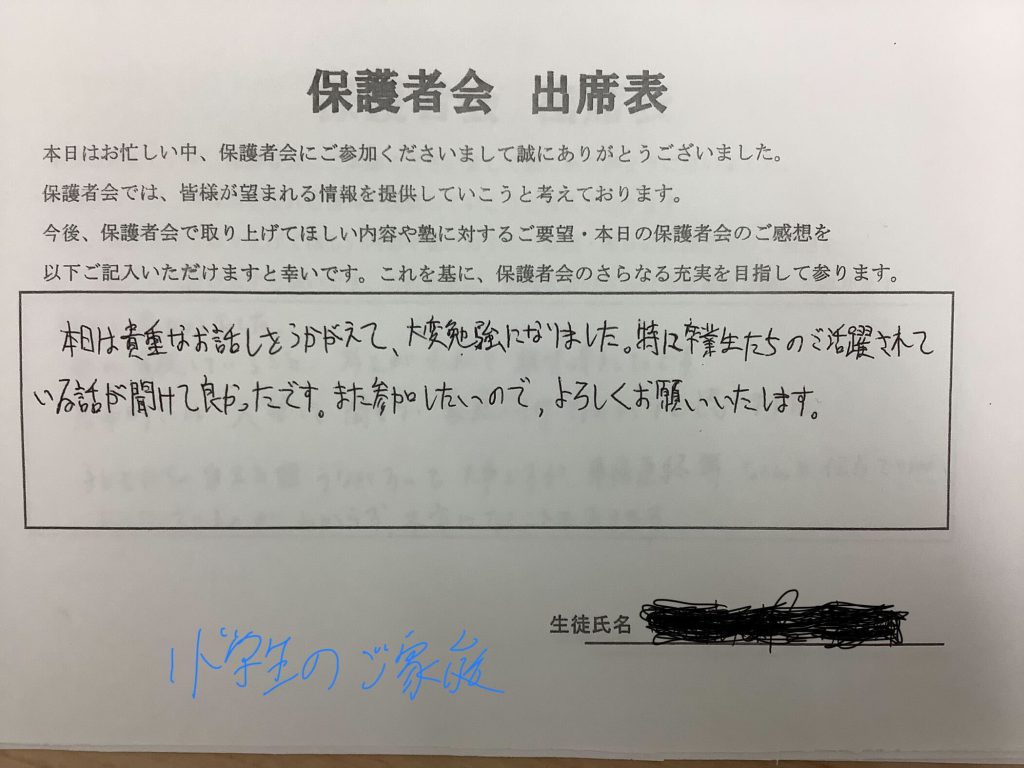 保護者会 出席表
本日はお忙しい中、保護者会にご参加くださいまして誠にありがとうございました。
保護者会では、皆様が望まれる情報を提供していこうと考えております。
今後、保護者会で取り上げてほしい内容や塾に対するご要望・本日の保護者会のご感想を
以下ご記入いただけますと幸いです。これを基に、保護者会のさらなる充実を目指して参ります。
本日は貴重なお話しをうかがえて、大変勉強になりました。特に卒業生たちのご活躍されて
いる話が聞けて良かったです。また参加したいので、よろしくお願いいたします。
生徒氏名
小学生のご家族